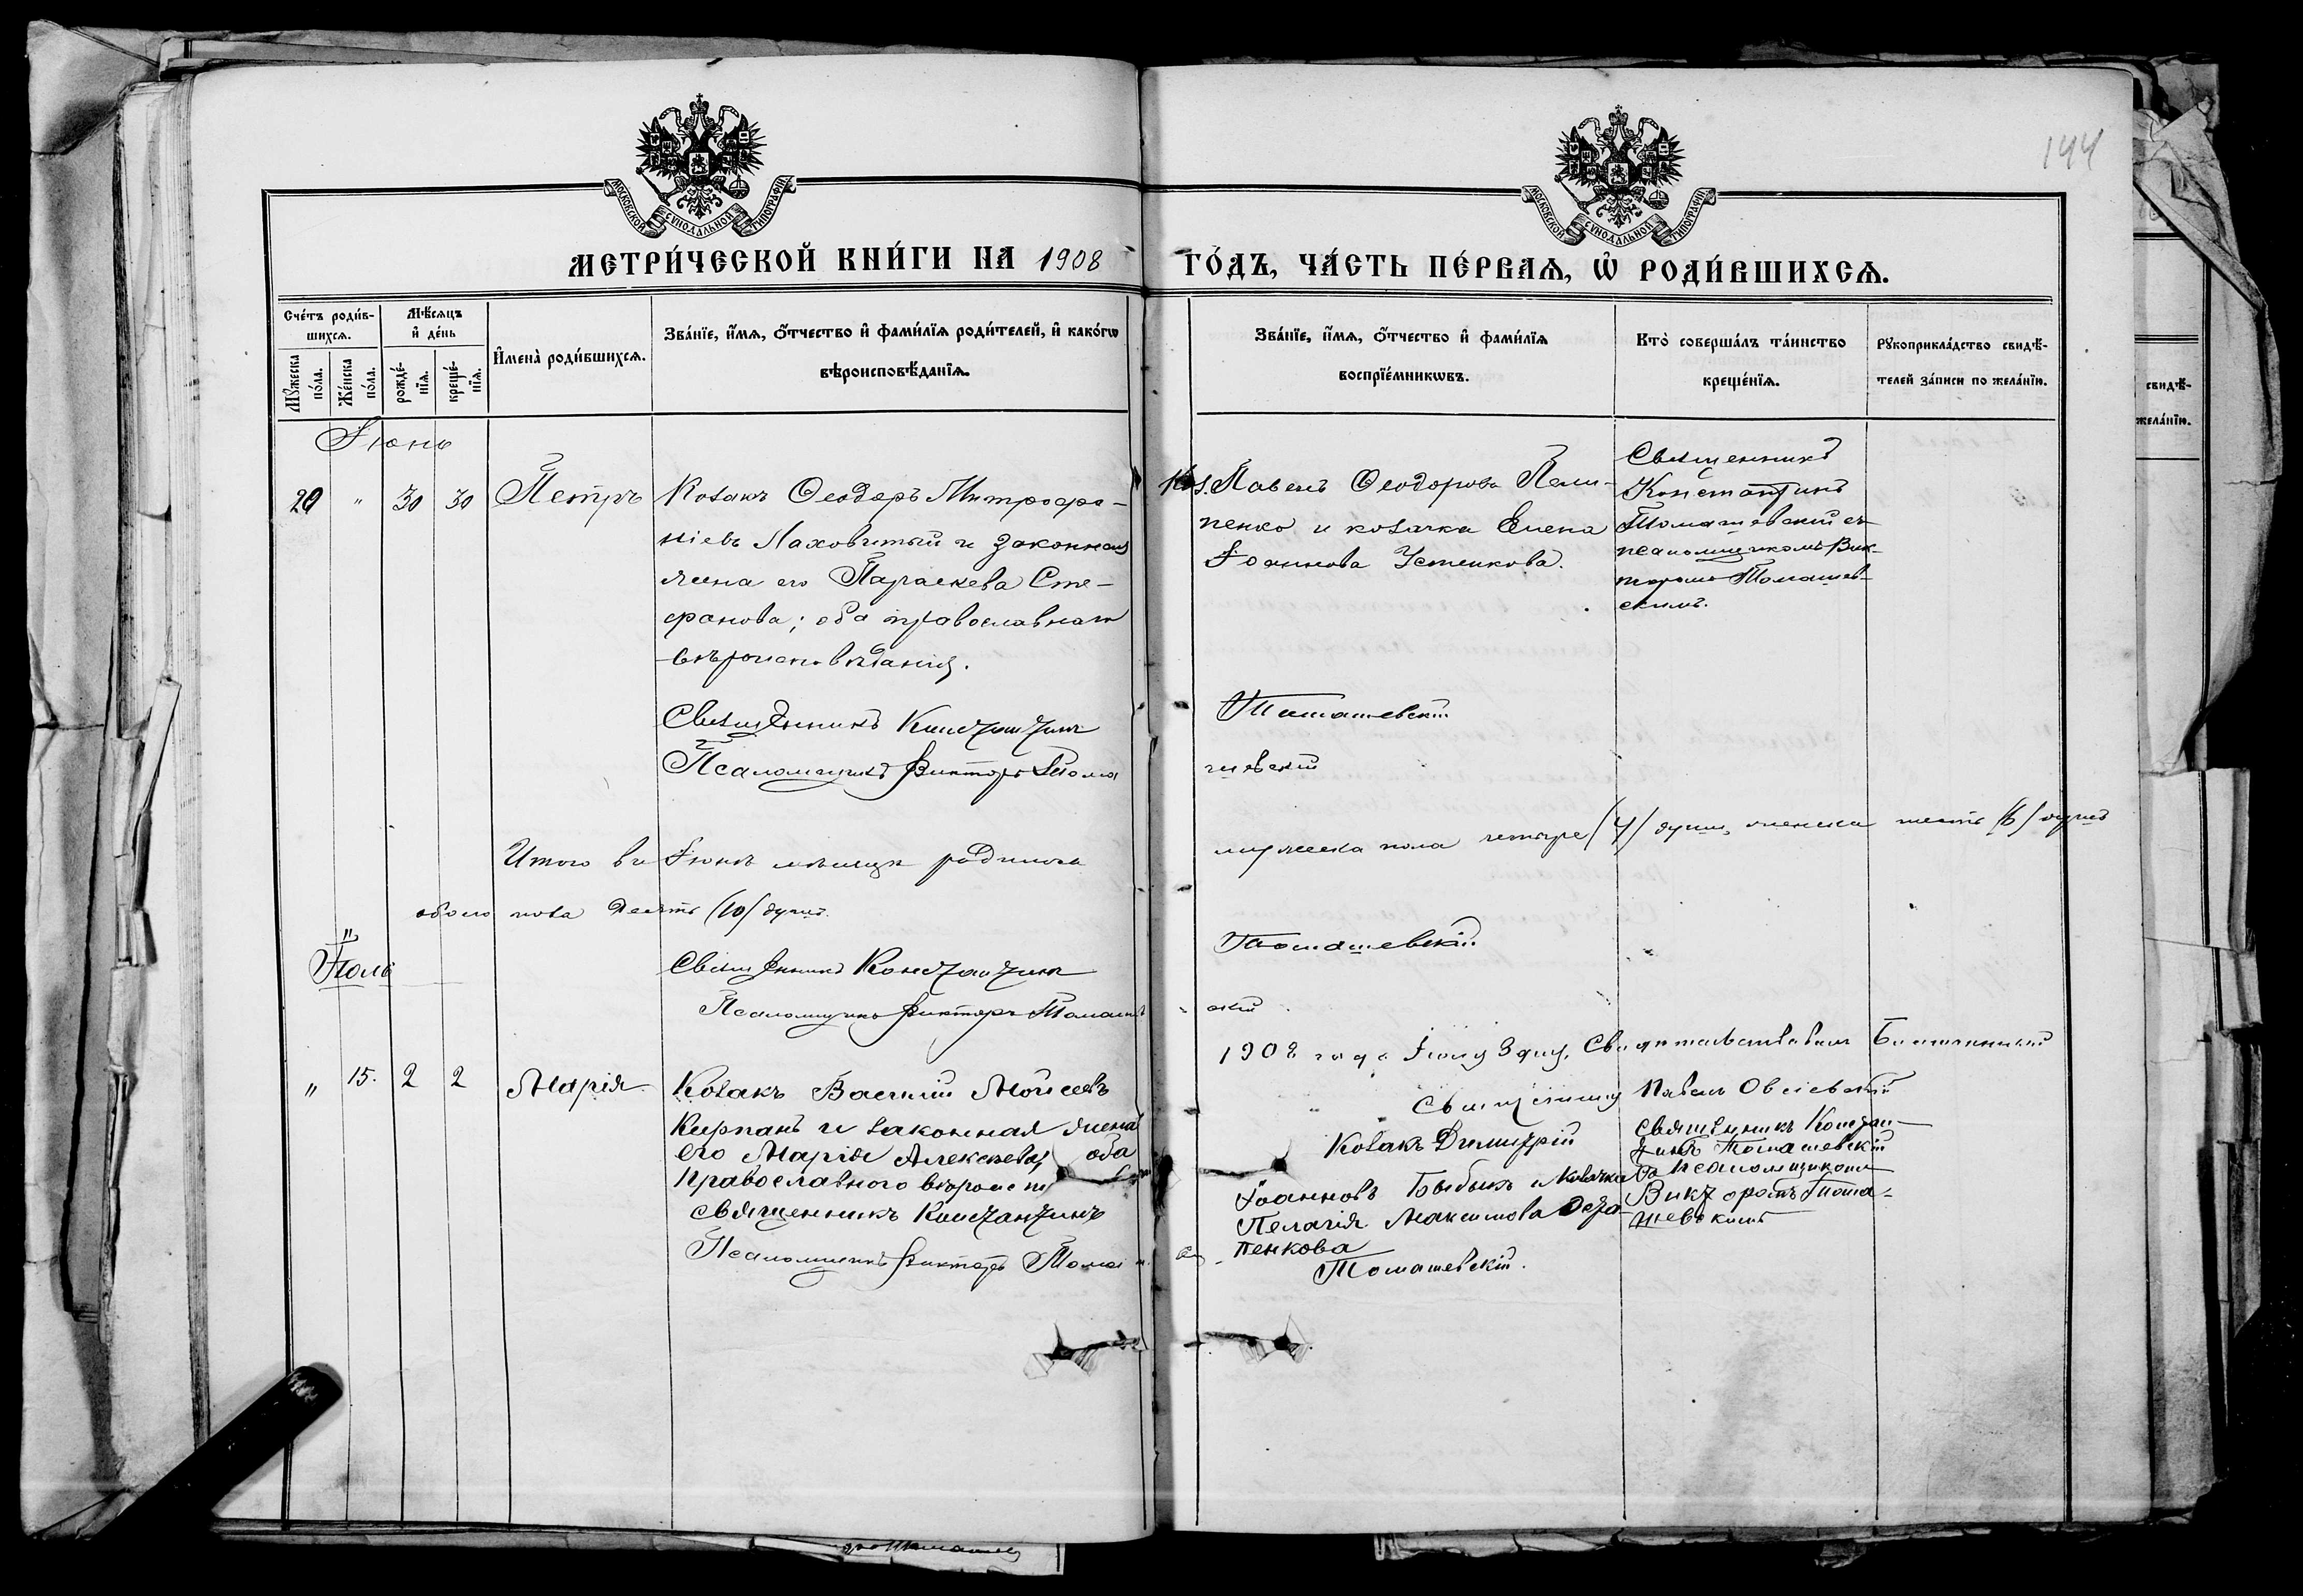 144
МОСКОВСКОЙ СѴНОДАЛЬНОЙ ТИПОГРАФІИ
МОСКОВСКОЙ СѴНОДАЛЬНОЙ ТИПОГРАФІИ
МЕТРИ́ЧЕСКОЙ КНИ́ГИ НА 1908
ГО́ДЪ, ЧА́СТЬ ПЕ́РВАѦ, Ѡ҆ РОДИ́ВШИХСѦ.
Сче́тъ роди́в-
шихсѧ.
Мѣ́сѧцъ
и҆ де́нь
Мꙋ́жеска
по́ла.
Же́нска
по́ла.
рожде́-
нїѧ.
креще́-
нїѧ.
И҆мена̀ роди́вшихсѧ.
Зва́нїе, и҆́мѧ, ѻ҆́тчество и҆ фами́лїѧ роди́телей, и҆ како́гѡ
вѣроисповѣ́данїѧ.
Зва́нїе, и҆́мѧ, ѻ҆́тчество и҆ фами́лїѧ
воспрїе́мникѡвъ.
Кто̀ соверша́лъ та́инство
креще́нїѧ.
Рꙋкоприкла́дство свидѣ́-
телей за́писи по жела́нїю.
свидѣ́-
жела́нїю.
Іюнь
20 " 30 30 Петръ
Козакъ Ѳеодоръ Митрофа-
ніевъ Лаховитый и законная
жена его Параскева Сте-
фанова; оба православнаго
вѣроисповѣданія.
Павелъ Ѳеодоровъ
пенко и козачка Елена
Іоаннова Устенкова.
Священникъ
Константинъ
Томашевскій съ
псаломщикомъ Вик-
торомъ Томашев-
скимъ.
Священникъ Константинъ
Томашевскій
Псаломщикъ Викторъ Тома
шевскій
Итого въ Іюнѣ мѣсяцѣ родилось
мужеска пола четыре (4) души, женска шесть (6) душъ
обоего пола десять (10) душъ.
Священникъ Константинъ
Томашевскій
Псаломщикъ Викторъ Томашев
скій
Іюль
1908 года Іюля 3 дня. Свидетельствовалъ Благочинный
Священникъ Павелъ
" 15. 2 2 Марія
Козакъ Василій Мойсеевъ
Кирпань и законная жена
его Марія Алексѣева, оба
православнаго вѣроисп
Козакъ Димитрій
Іоанновъ и козачка
Пелагія Максимова
пенкова
Священникъ Констан-
тинъ Томашевскій
съ псаломщикомъ
Викторомъ Тома-
шевскимъ
священникъ Константинъ
Томашевскій.
Псаломщикъ Викторъ Тома